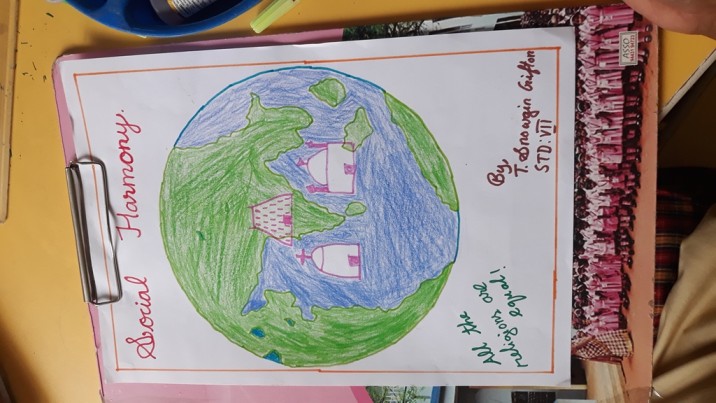 Social Harmony.
All the
religions are
equal!
By,
T. Snowgin Grifton
STD: VII
ASSO